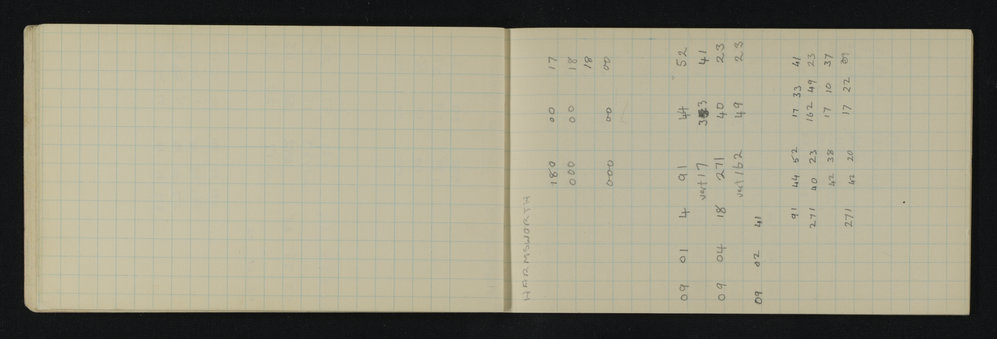 HARMSWORTH
180 00 17
000 00 18
18
000 00 00
09 01 4 91 44 52
vert 17 33 41
09 04 18 271 40 23
vert 162 49 23
09 02 41
91 44 52 17 33 41
271 40 23 162 49 23
42 38 17 10 37
271 42 20 17 22